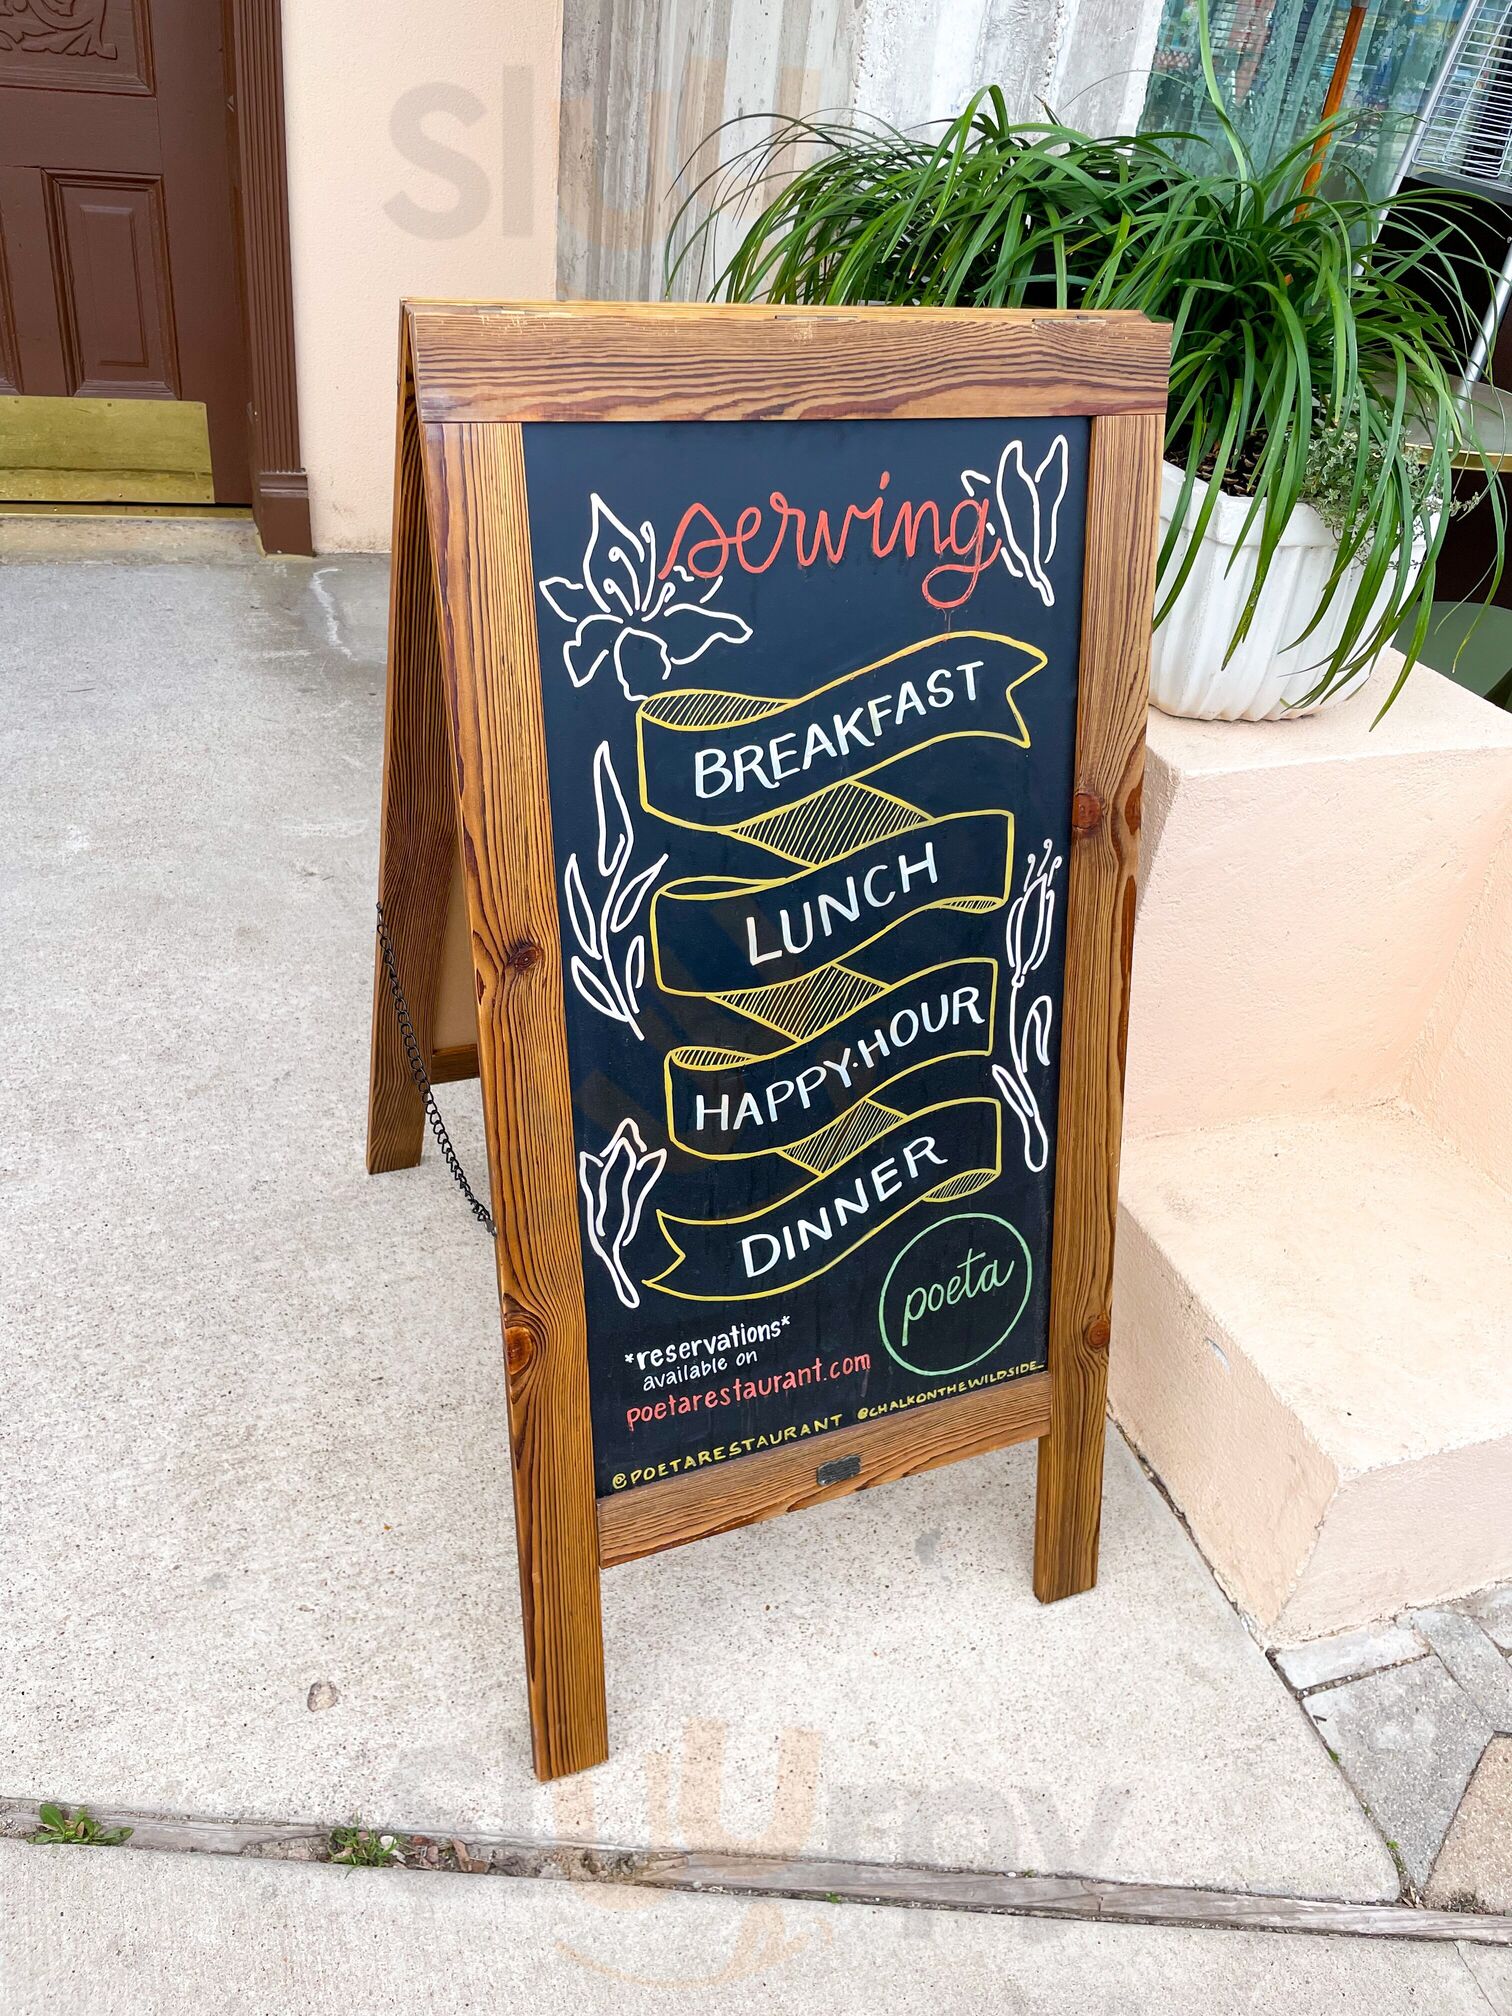 serving
BREAKFAST
LUNCH
HAPPY·HOUR
DINNER
poeta
*reservations*
available on
poetarestaurant.com
@POETARESTAURANT @CHALKONTHEWILDSIDE_